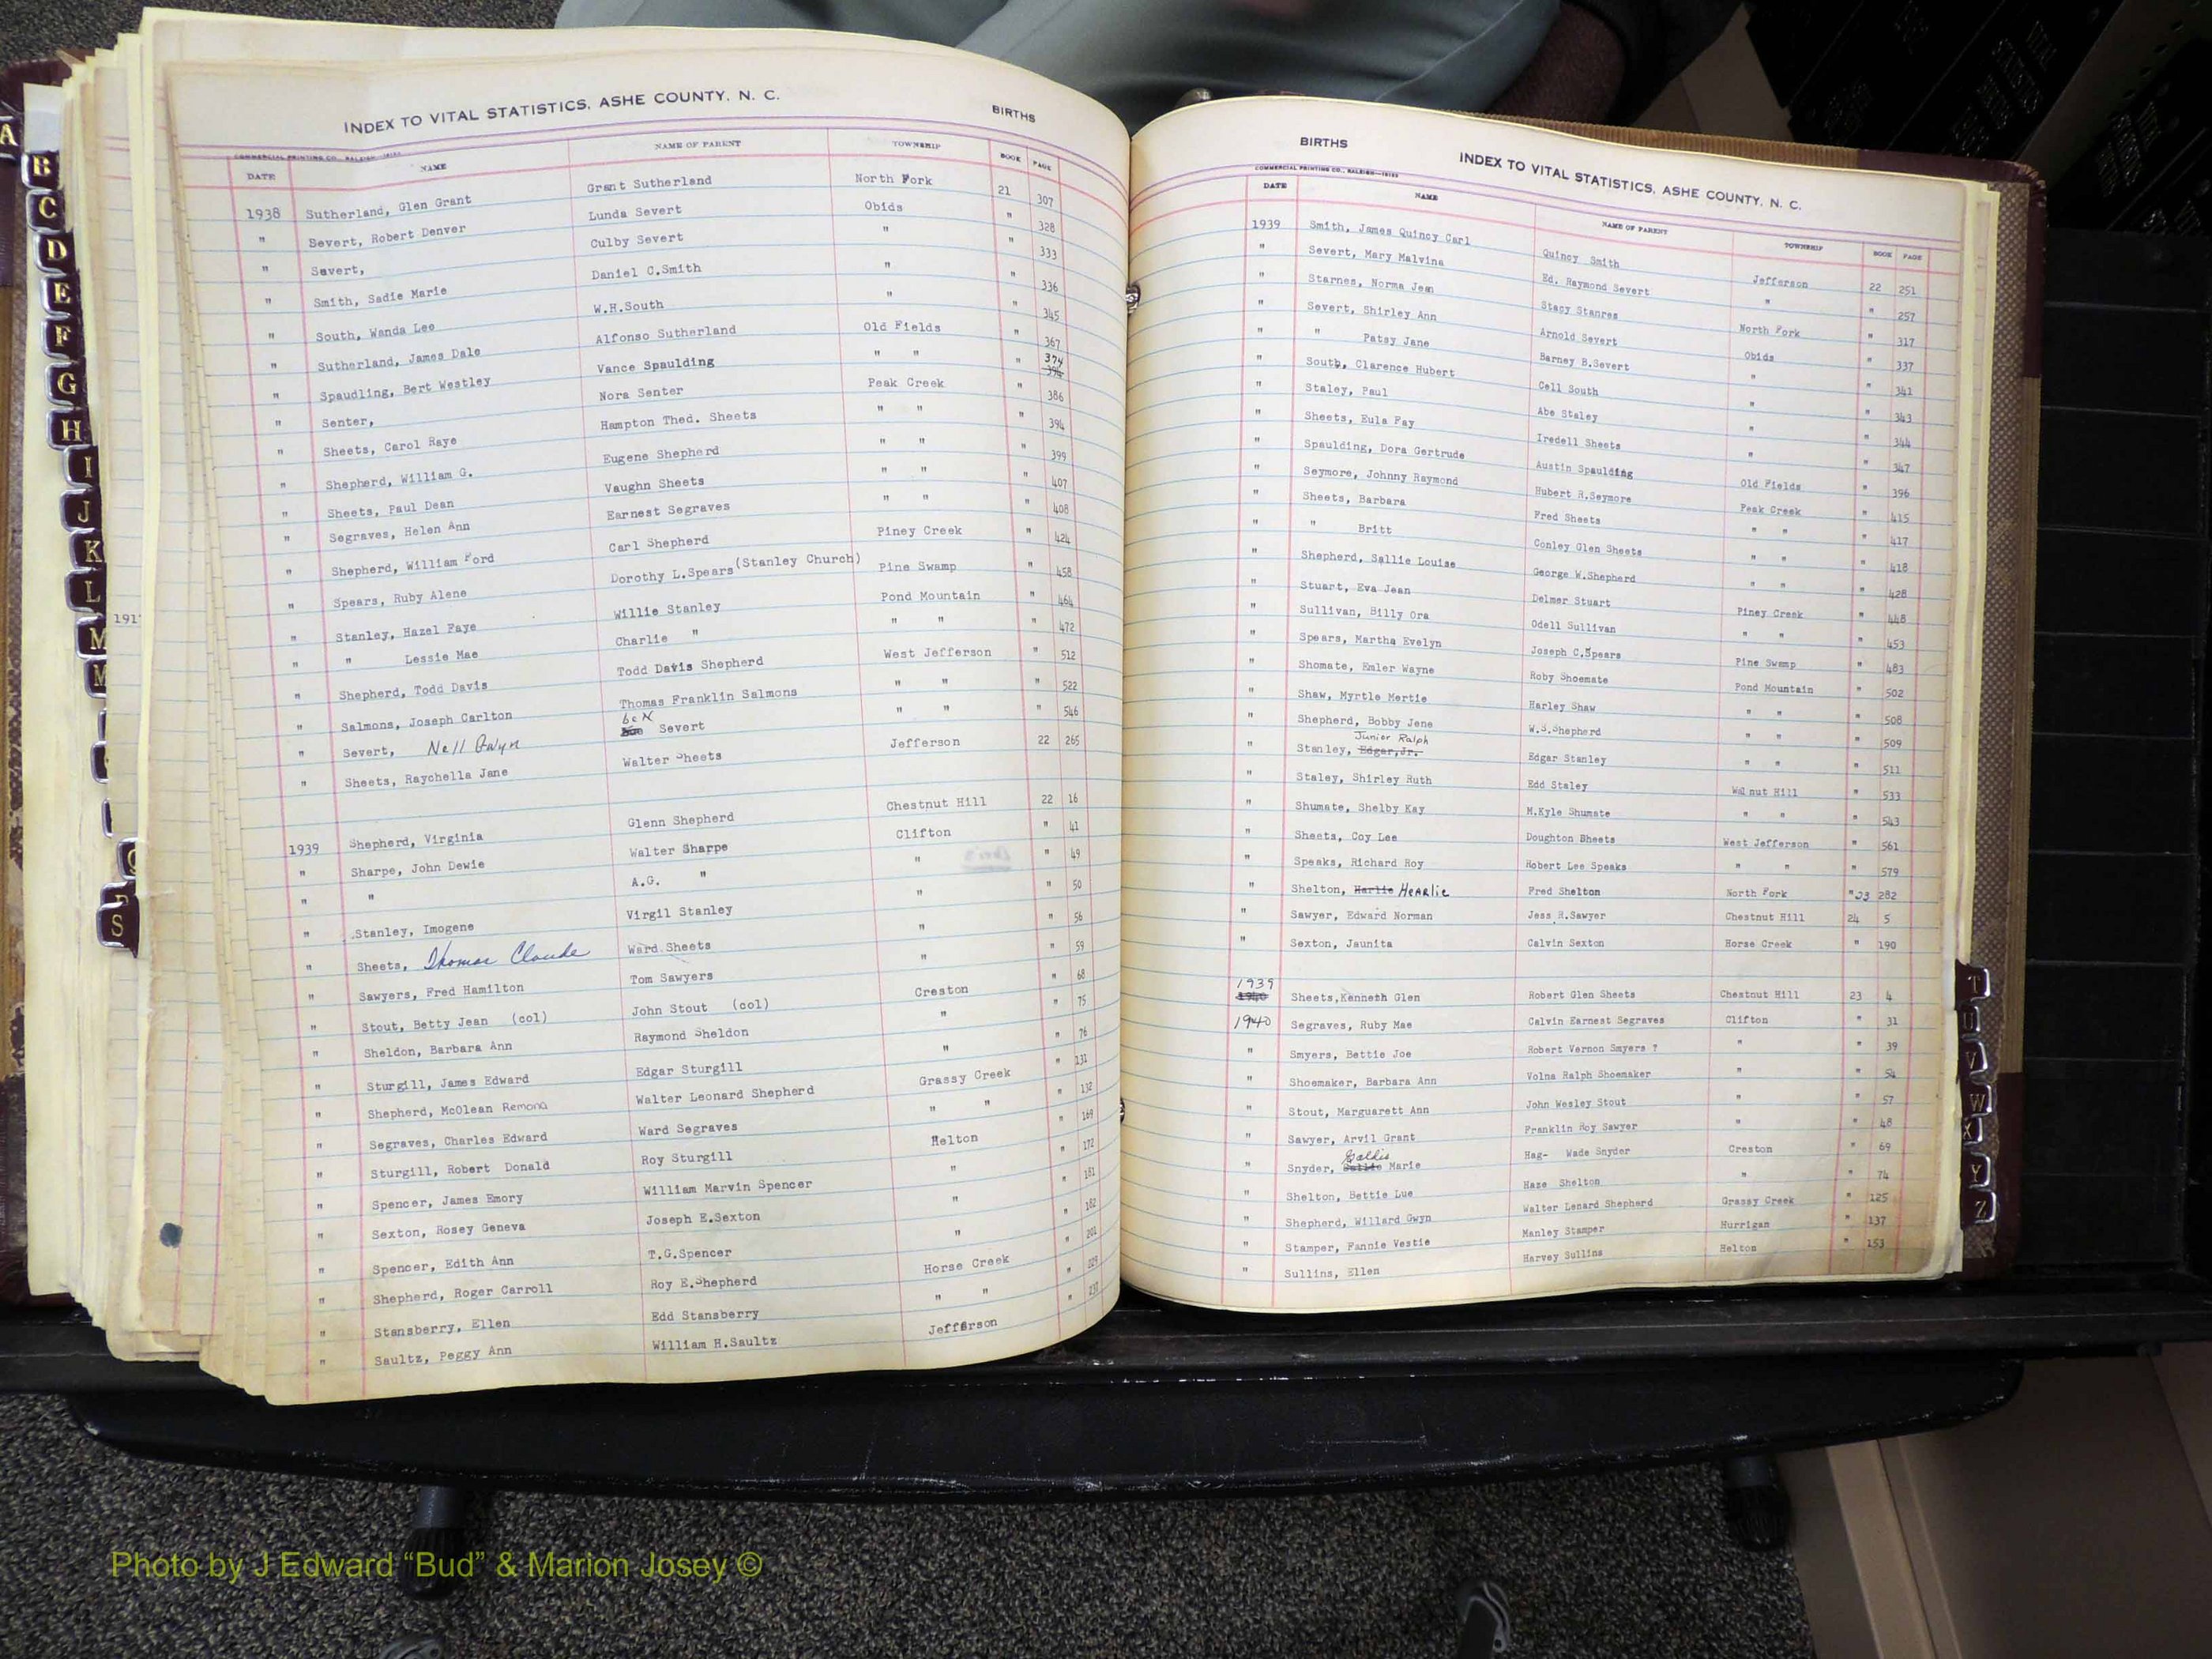 INDEX TO VITAL STATISTICS, ASHE COUNTY, N. C. BIRTHS
COMMERCIAL PRINTING CO., RALEIGH
DATE NAME NAME OF PARENT TOWNSHIP BOOK PAGE
1938 Sutherland, Glen Grant Grant Sutherland North Fork 21 307
" Severt, Robert Denver Lunda Severt Obids " 328
" Severt, Culby Severt " " 333
" Smith, Sadie Marie Daniel C.Smith " " 336
" South, Wanda Lee W.H.South " " 345
" Sutherland, James Dale Alfonso Sutherland Old Fields " 367
" Spaudling, Bert Westley Vance Spaulding " " " 374 394
" Senter, Nora Senter Peak Creek " 386
" Sheets, Carol Raye Hampton Thed. Sheets " " " 394
" Shepherd, William G. Eugene Shepherd " " " 399
" Sheets, Paul Dean Vaughn Sheets " " " 407
" Segraves, Helen Ann Earnest Segraves " " " 408
" Shepherd, William Ford Carl Shepherd Piney Creek " 424
" Spears, Ruby Alene Dorothy L.Spears (Stanley Church) Pine Swamp " 458
" Stanley, Hazel Faye Willie Stanley Pond Mountain " 464
" " Lessie Mae Charlie " " " " 472
" Shepherd, Todd Davis Todd Davis Shepherd West Jefferson " 512
" Salmons, Joseph Carlton Thomas Franklin Salmons " " " 522
" Severt, Nell Gwyn Severt " " " 546
" Sheets, Raychella Jane Walter Sheets Jefferson 22 265
1939 Shepherd, Virginia Glenn Shepherd Chestnut Hill 22 16
" Sharpe, John Dewie Walter Sharpe Clifton " 41
" " A.G. " " " 49
" Stanley, Imogene Virgil Stanley " " 50
" Sheets, Thomas Claude Ward Sheets " " 56
" Sawyers, Fred Hamilton Tom Sawyers " " 59
" Stout, Betty Jean (col) John Stout (col) Creston " 68
" Sheldon, Barbara Ann Raymond Sheldon " " 75
" Sturgill, James Edward Edgar Sturgill " " 76
" Shepherd, McOlean Remona Walter Leonard Shepherd Grassy Creek " 131
" Segraves, Charles Edward Ward Segraves " " " 132
" Sturgill, Robert Donald Roy Sturgill Helton " 169
" Spencer, James Emory William Marvin Spencer " " 172
" Sexton, Rosey Geneva Joseph E.Sexton " " 181
" Spencer, Edith Ann T.G.Spencer " " 182
" Shepherd, Roger Carroll Roy E.Shepherd Horse Creek " 201
" Stansberry, Ellen Edd Stansberry " " "
" Saultz, Peggy Ann William H.Saultz Jefferson "
BIRTHS INDEX TO VITAL STATISTICS, ASHE COUNTY, N. C.
COMMERCIAL PRINTING CO., RALEIGH
DATE NAME NAME OF PARENT TOWNSHIP BOOK PAGE
1939 Smith, James Quincy Carl Quincy Smith Jefferson 22 251
" Severt, Mary Malvina Ed. Raymond Severt " " 257
" Starnes, Norma Jean Stacy Stanres North Fork " 317
" Severt, Shirley Ann Arnold Severt Obids " 337
" " Patsy Jane Barney B.Severt " " 341
" South, Clarence Hubert Cell South " " 343
" Staley, Paul Abe Staley " " 344
" Sheets, Eula Fay Iredell Sheets " " 347
" Spaulding, Dora Gertrude Austin Spaulding Old Fields " 396
" Seymore, Johnny Raymond Hubert H.Seymore Peak Creek " 415
" Sheets, Barbara Fred Sheets " " " 417
" " Britt Conley Glen Sheets " " " 418
" Shepherd, Sallie Louise George W.Shepherd " " " 428
" Stuart, Eva Jean Delmer Stuart Piney Creek " 448
" Sullivan, Billy Ora Odell Sullivan " " " 453
" Spears, Martha Evelyn Joseph C.Spears Pine Swamp " 483
" Shomate, Emler Wayne Roby Shoemate Pond Mountain " 502
" Shaw, Myrtle Mertie Harley Shaw " " " 508
" Shepherd, Bobby Jene W.S.Shepherd " " " 509
" Stanley, Edgar,Jr. Junior Ralph Edgar Stanley " " " 511
" Staley, Shirley Ruth Edd Staley Walnut Hill " 533
" Shumate, Shelby Kay M.Kyle Shumate " " " 543
" Sheets, Coy Lee Doughton Sheets West Jefferson " 561
" Speaks, Richard Roy Robert Lee Speaks " " " 579
" Shelton, Harlie Hearlie Fred Shelton North Fork "23 282
" Sawyer, Edward Norman Jess R.Sawyer Chestnut Hill 24 5
" Sexton, Jaunita Calvin Sexton Horse Creek " 190
1939
1940 Sheets,Kenneth Glen Robert Glen Sheets Chestnut Hill 23 4
1940 Segraves, Ruby Mae Calvin Earnest Segraves Clifton " 31
" Smyers, Bettie Joe Robert Vernon Smyers ? " " 39
" Shoemaker, Barbara Ann Volna Ralph Shoemaker " " 54
" Stout, Marguarett Ann John Wesley Stout " " 57
" Sawyer, Arvil Grant Franklin Roy Sawyer " " 48
" Snyder, Goldie Marie Hag- Wade Snyder Creston " 69
" Shelton, Bettie Lue Haze Shelton " " 74
" Shepherd, Willard Gwyn Walter Lenard Shepherd Grassy Creek " 125
" Stamper, Fannie Vestie Manley Stamper Hurrigan " 137
" Sullins, Ellen Harvey Sullins Helton " 153
A
B
C
D
E
F
G
H
I
J
K
L
M
S
191
T
U
V
W
X
Y
Z
Photo by J Edward “Bud” & Marion Josey ©